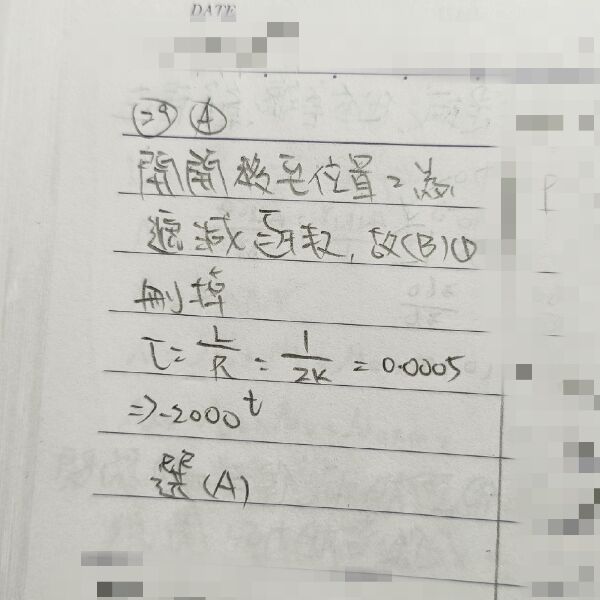 DATE
29 A
開關移至位置2為
遞減函數,故(B)(D)
刪掉
τ = L/R = 1/2K = 0.0005
=> -2000^t
選(A)